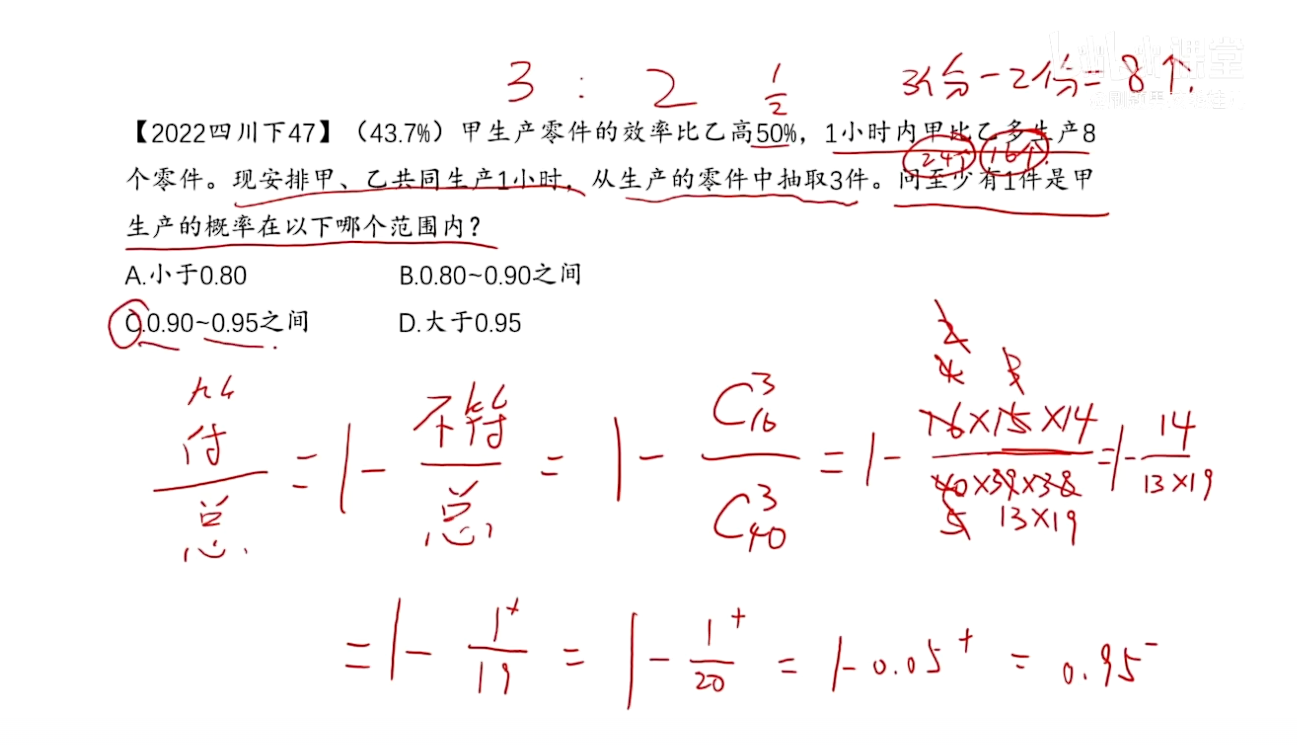 3 : 2 1/2 3份-2份=8个.
课堂
【2022四川下47】（43.7%）甲生产零件的效率比乙高50%，1小时内甲比乙多生产8
24个 16个.
个零件。现安排甲、乙共同生产1小时，从生产的零件中抽取3件。问至少有1件是甲
生产的概率在以下哪个范围内？
A.小于0.80 B.0.80~0.90之间
C.0.90~0.95之间 D.大于0.95
符/总 = 1 - 不符/总 = 1 - C₁₆³/C₄₀³ = 1 - 16×15×14/40×39×38 = 1 - 14/13×19
2
4 3
5 13×19
= 1 - 1⁺/19 = 1 - 1⁺/20 = 1 - 0.05⁺ = 0.95⁻